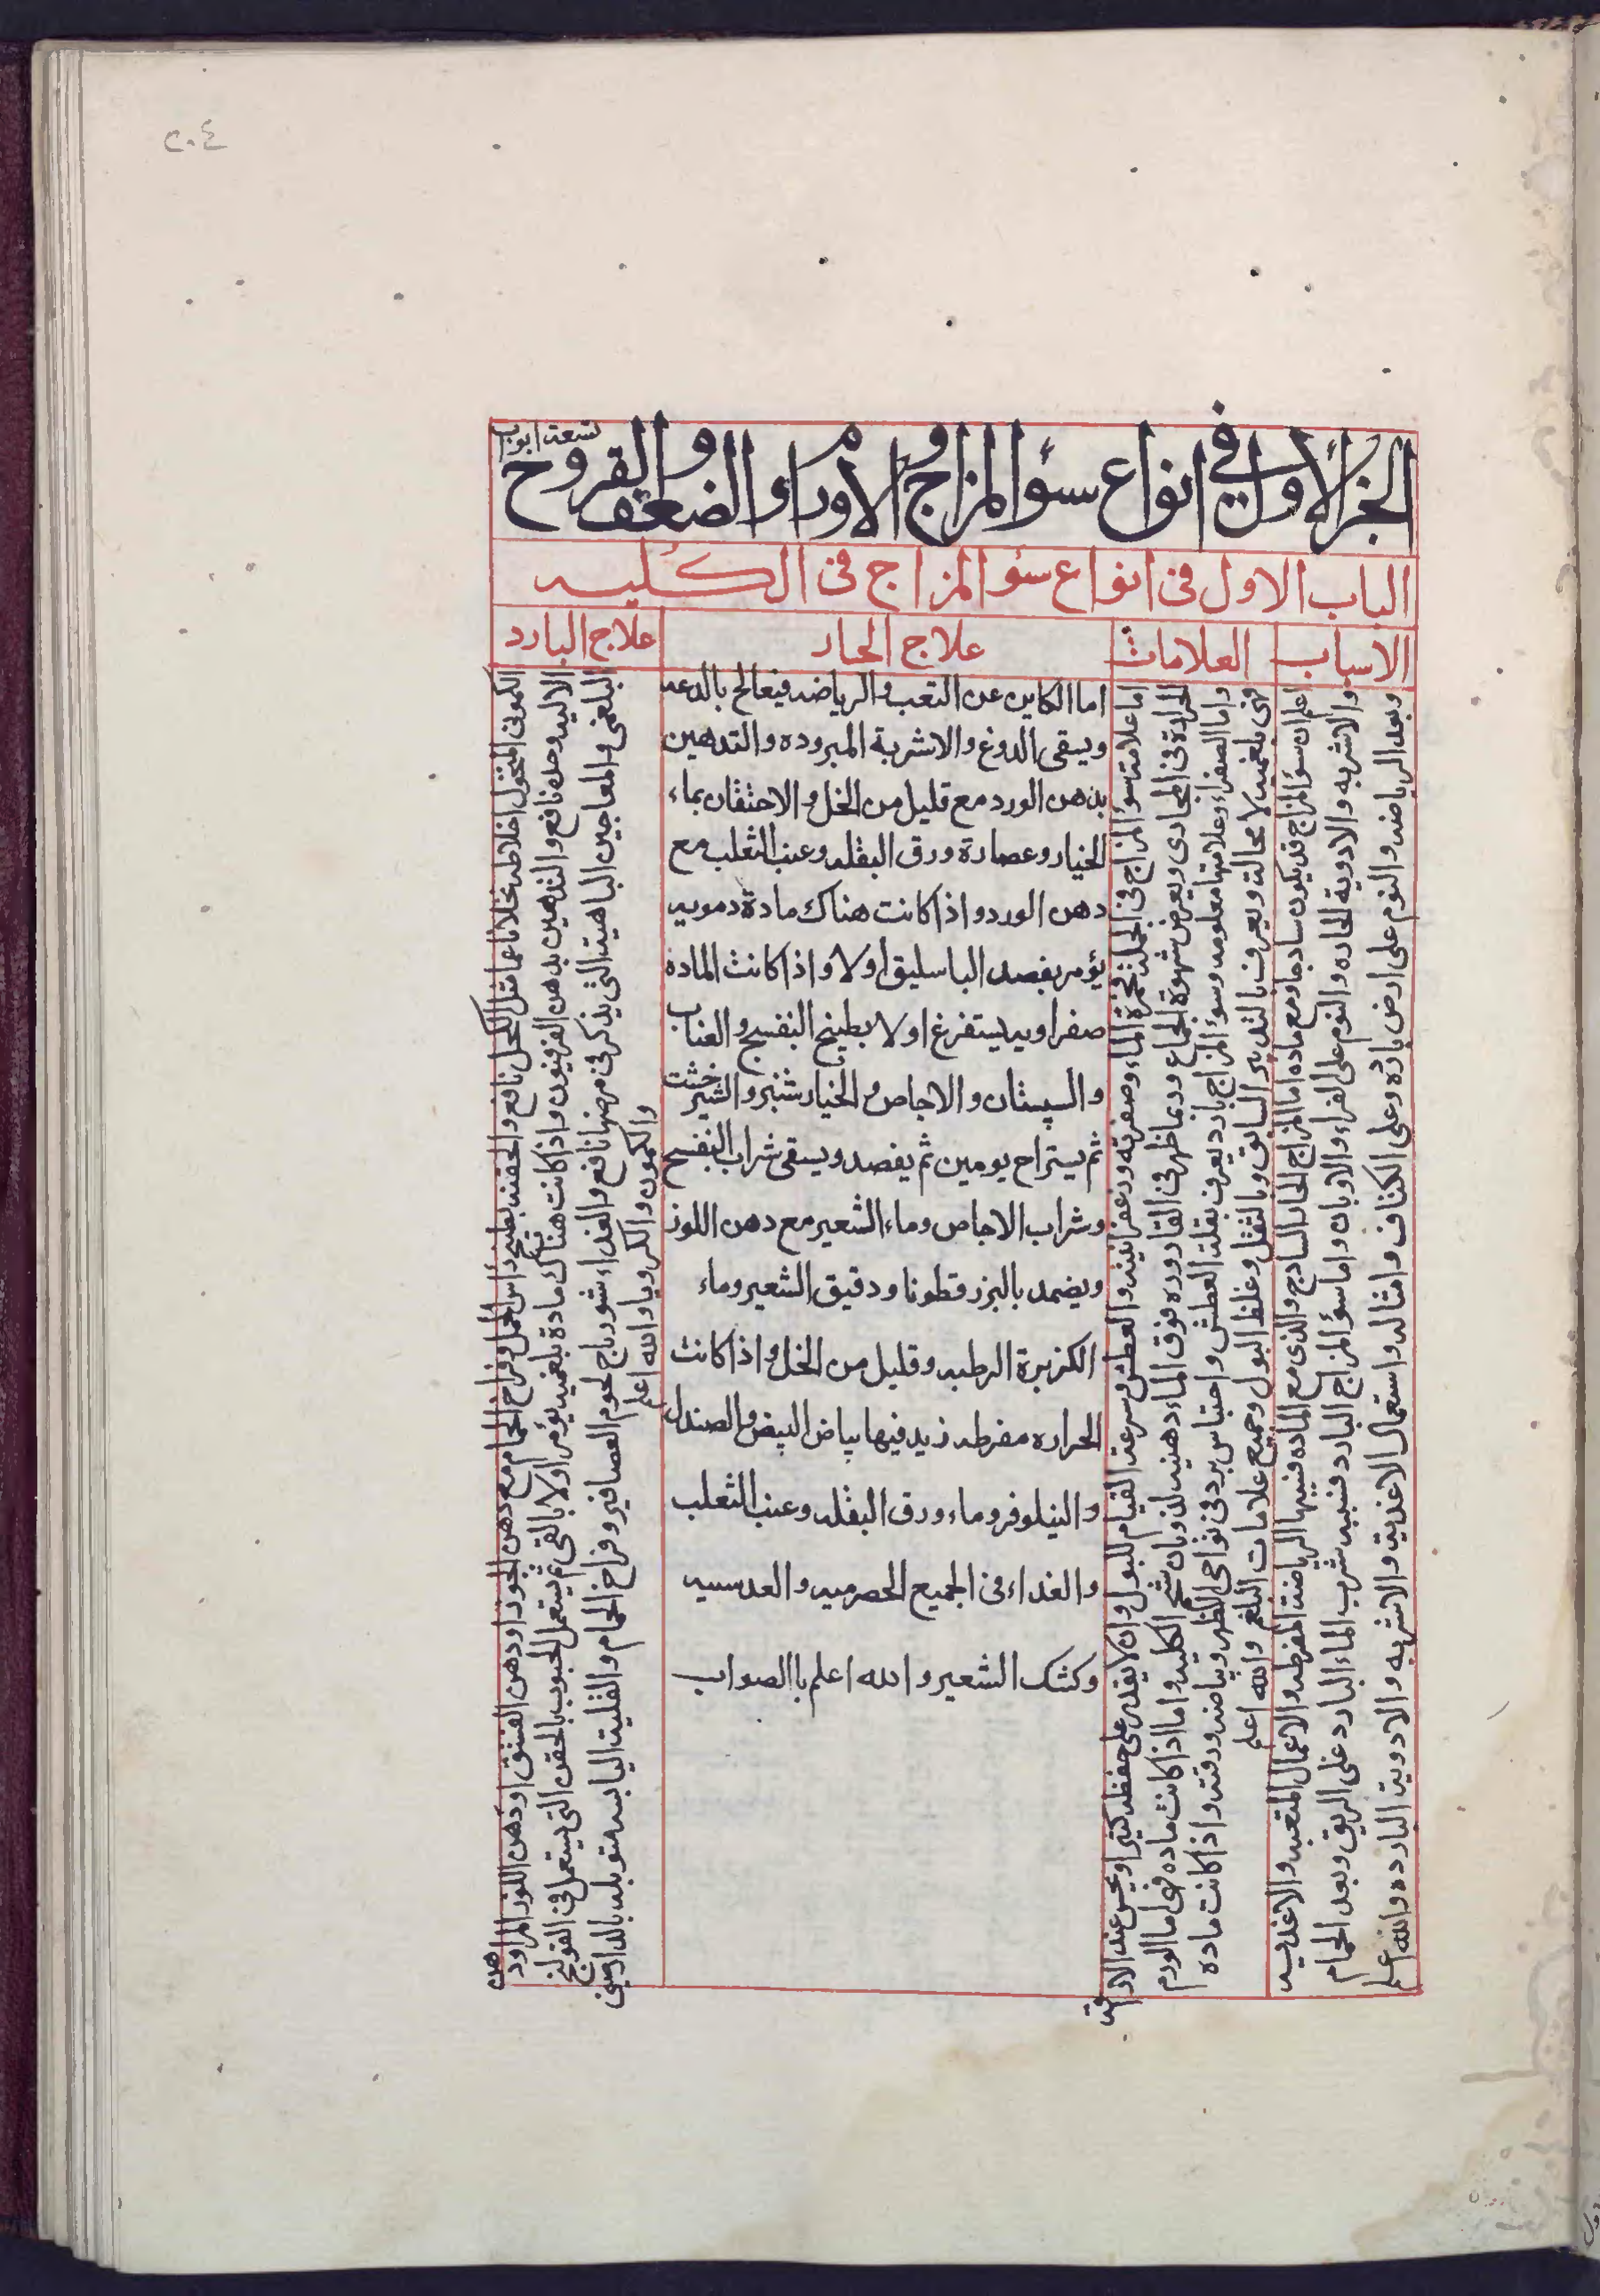 ٢٠٤
الجزء الاول فى انواع سؤ المزاج والاورام والضعف والقروح
تسعة ابواب
الباب الاول فى انواع سؤ المزاج فى الكليه
الاسباب
العلامات
علاج الحار
علاج البارد
اعلم ان سؤ المزاج قد يكون ساذجا ومع ماده اما المزاج الحار الساذج والذى مع الماده فسببها الرياضة المفرطه والاعمال المتعبه والاغذيه
والاشربه والادوية الحاره والنوم على الفراء والاوبار واما سؤ المزاج البارد فسببه شرب الماء البارد على الريق وبعد الحمام
وبعد الرياضه والنوم على ارض بارده وعلى الكتاف وامثاله واستعمال الاغذية والاشربه والادوية البارده والله اعلم
اما علامة سوء المزاج فى الجملة فحمرة الماء وصفرته وزعفرانيته والعطش وسرعة القيام للبول وان لا يقدر على حفظه كثيرا ويحس عند الاراقة
الحرارة فى المجارى ويعرض شهوة الجماع وربما ظهر فى القاروره فوق الماء دهنيه لذوبان شحم الكليه واما اذا كانت ماده فهى اما الورم
واما الصفراء وعلامتها معلومه وسوء المزاج بارد يعرف بقلة العطش واحتباس برد فى نواحى الظهر وبياضه ورقته واذا كانت ماده
فهى بلغمية لا محالة ويعرف بالتدبير السابق وبالثقل وغلظ البول وجميع علامات البلغم والله اعلم
اما الكاين عن التعب والرياضه فيعالج بالدعه
ويسقى الدوغ والاشربة المبروده والتدهين
بدهن الورد مع قليل من الخل والاحتقان بماء
الخيار وعصارة ورق البقله وعنب الثعلب مع
دهن الورد واذا كانت هناك مادة دمويه
يؤمر بفصد الباسليق اولا واذا كانت الماده
صفراويه يستفرغ اولا بطبيخ البنفسج والعناب
والسبستان والاجاص والخيارشنبر والشيرخشت
ثم يستراح يومين ثم يفصد ويسقى شراب البنفسج
وشراب الاجاص وماء الشعير مع دهن اللوز
ويضمد بالبزرقطونا ودقيق الشعير وماء
الكزبرة الرطبه وقليل من الخل واذا كانت
الحراره مفرطه زيد فيها بياض البيض والصندل
والنيلوفر وماء ورق البقله وعنب الثعلب
والغداء فى الجميع الحصرميه والعدسيه
وكشك الشعير والله اعلم باالصواب
الكمونى المنخول اخلاطه نخلا ناعما مثل الكحل نافع والحقنه بطبيخ راس الحمل وفراخ الحمام مع دهن الجوز او دهن الفستق او دهن اللوز المر او دهن
الاليه وحده نافع والتدهين بدهن الفرفيون واذا كانت هناك مادة بلغميه يؤمر اولا بالقى ثم يستعمل الحبوب بالحقن التى يستعمل فى القولنج
البلغمى والمعاجين الباهية التى يذكر فى مرضها نافع والغداء شورباج لحوم العصافير وفراخ الحمام والقلية اليابسه متوبله بالدارصينى
والكمون والكرويا والله اعلم